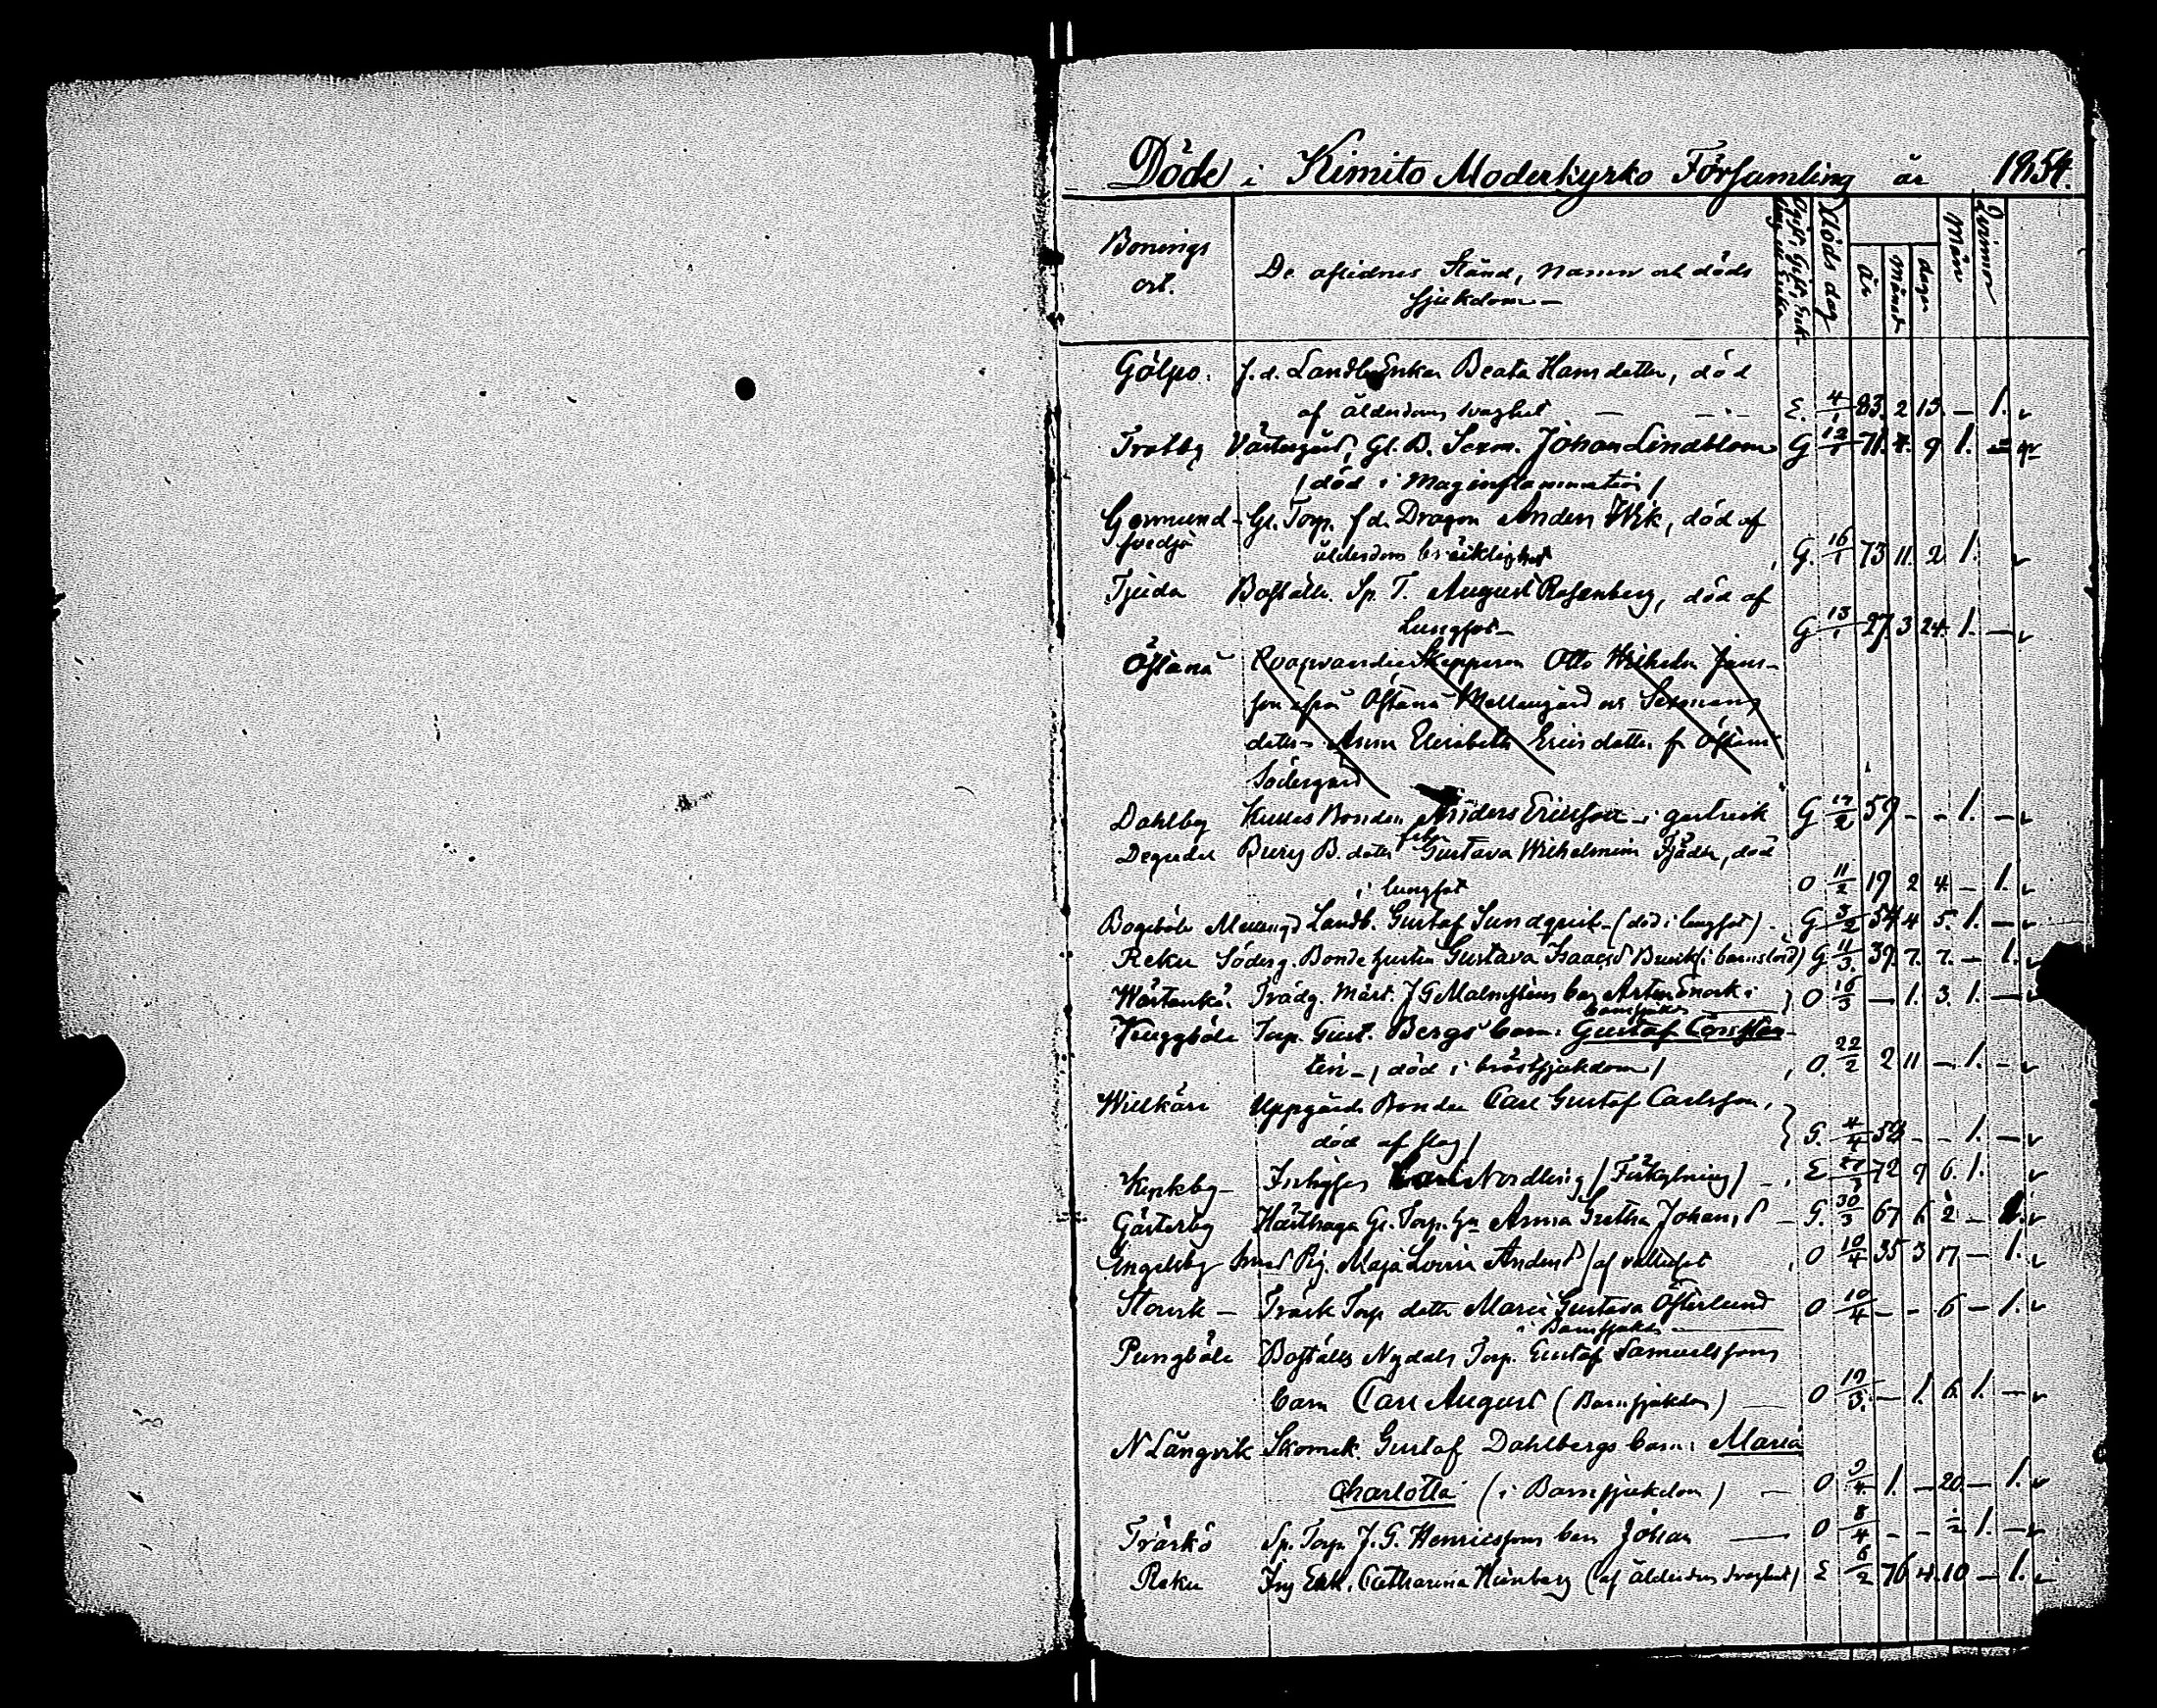 Döde i Kimito Moderkyrko Församling år 1854.
Bonings ort.
De aflidnes Stånd, Namn och döds sjukdom —
Ogift, Gift, Enkling eller Enka
Döds dag
år
Månad
dagar
Män
Qvinnor
Gölpo. f. d. Landb. Enkan Beata Hansdotter, död
af ålderdoms svaghet — E. 4/1 83. 2 15. — 1.
Trotby Västergård, Gl. B. Sexm. Johan Lindblom G 12/1 71. 4. 9 1. —
(död i Maginflammation)
Germund- Gl. Torp. f d. Dragon Anders Wik, död af
svedja ålderdoms bräcklighet G. 16/1 73 11. 2 1.
Tjuda Boställe. Sp. T. August Rosenberg, död af
Lungsot — G 13/1 27 3 24. 1. —
Östanå Skepparen Otto Wilhelm Jans-
son ifrån Östanå Mellangård och Sexmans
dotter Anna Elisabeth Ericsdotter fr Östanå
Södergård
Dahlby Kullas Bonden Anders Ericsson i gastrisk G 14/2 59 - - 1. —
feber
Degerdal B. dotter Gustava Wilhelmina Fjäder, död
i lungsot O 11/2 19 2 4. — 1.
Bogsböle Mellangd Landb. Gustaf Sundqvist (död i lungsot). G 5/2 54 4 5. 1. —
Reku Söderg. Bonde hustru Gustava Isaacsd (i barnsbörd) G 11/3. 39. 7. 7. — 1.
Trädg. Mäst. J G Malmstens barn i O 16/3 — 1. 3. 1. —
barnsjukd
Torp. Gust. Bergs barn: Gustaf Constan-
tin — (död i bröstsjukdom) O. 22/2 2 11 — 1. —
Willkärr Uppgårds Bonden Carl Gustaf Carlsson,
död af slag) G. 4/4 54 - - 1. —
Inhyses Carl Nordling (Förkylning) — E 72 9 6. 1.
Gästerby Hästhaga Gl. Torp. hu Anna Gretha Johansd — G. 30/3 67 6 2 — 1.
Engelsby Pig. Maja Lovisa Andersd (af vattusot O 10/4 35 3 17 — 1.
Storvik — Träsk Torp dottr Maria Gustava Österlund O 10/4 — - 6 — 1.
i Barnsjukd.
Pungböle Boställs Nydals Torp. Gustaf Samuelssons
barn Carl August (Barnsjukdom) — O 19/3. — 1. 6. 1. —
N Långvik Skomak. Gustaf Dahlbergs barn: Maria
Charlotta (i Barnsjukdom) — O 9/4. 1. — 20. — 1.
Träskö Sp. Torp. J. G. Henricssons barn Johan — O 8/4 - - 1/2 1. —
Reku Enk. Catharina (af ålderdoms svaghet) E 6/2 76 4. 10 — 1.